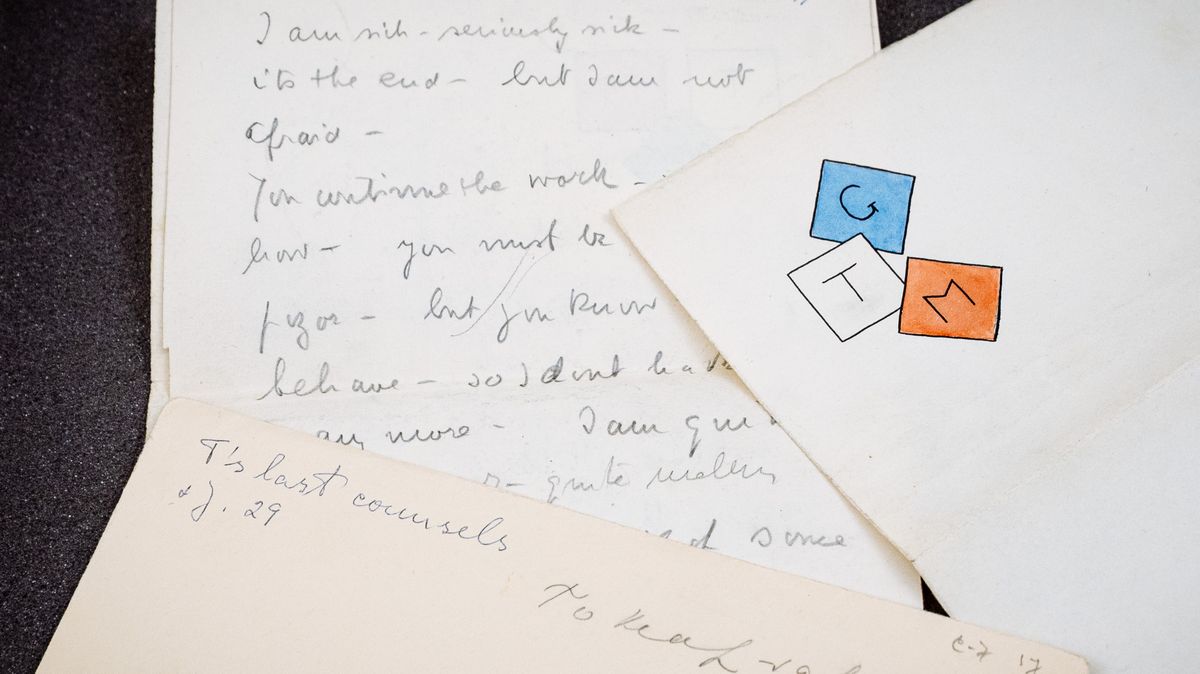 I am sick - seriously sick -
its the end - but I am not
afraid -
You continue the work -
how - you must be
but you know
behave - so I dont have
any more - I am qui
quite
of some
T's last counsels
& J. 29
To
G
T
M